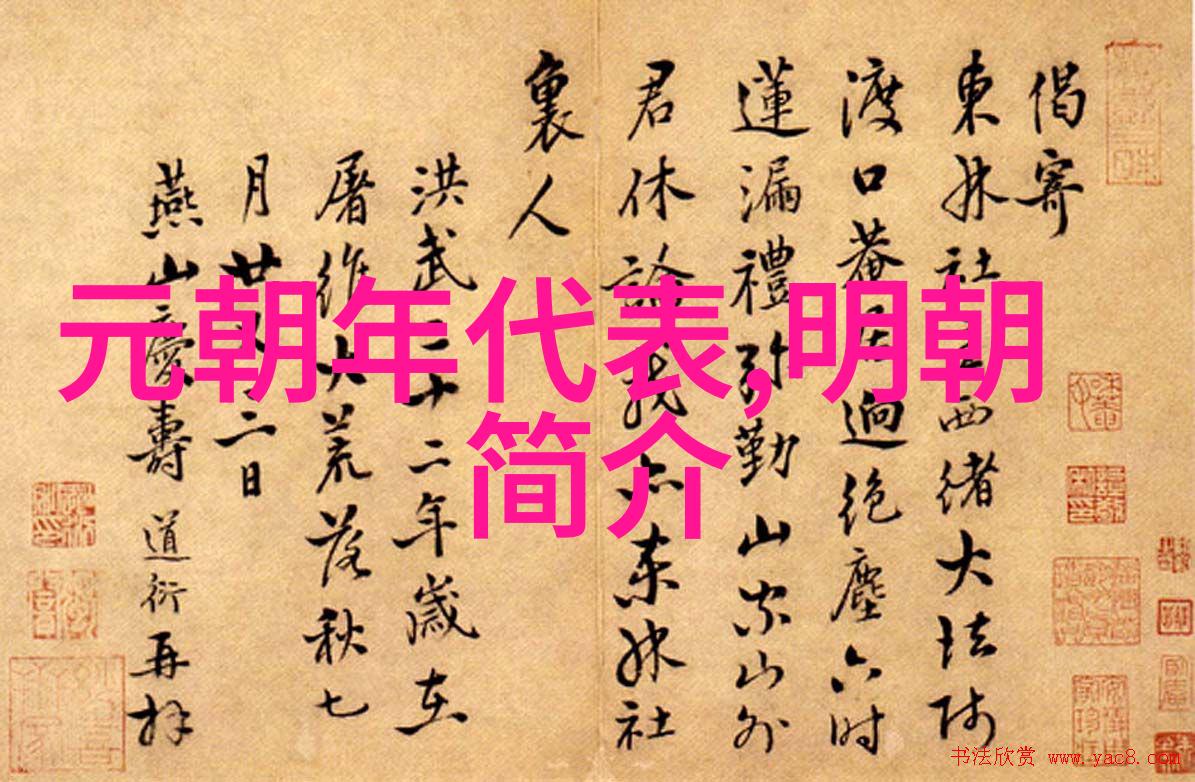 偈寄
東林社西緒大法師
渡口菴居迥絕塵六時
蓮漏禮彌勤山家山外
君休論我亦東林社
裏人
洪武二十二年歲在
屠維大荒落秋七
月廿二日
燕山慶壽道衍再拜
元朝年代表,明朝
简介
书法欣赏 www.yac8.com